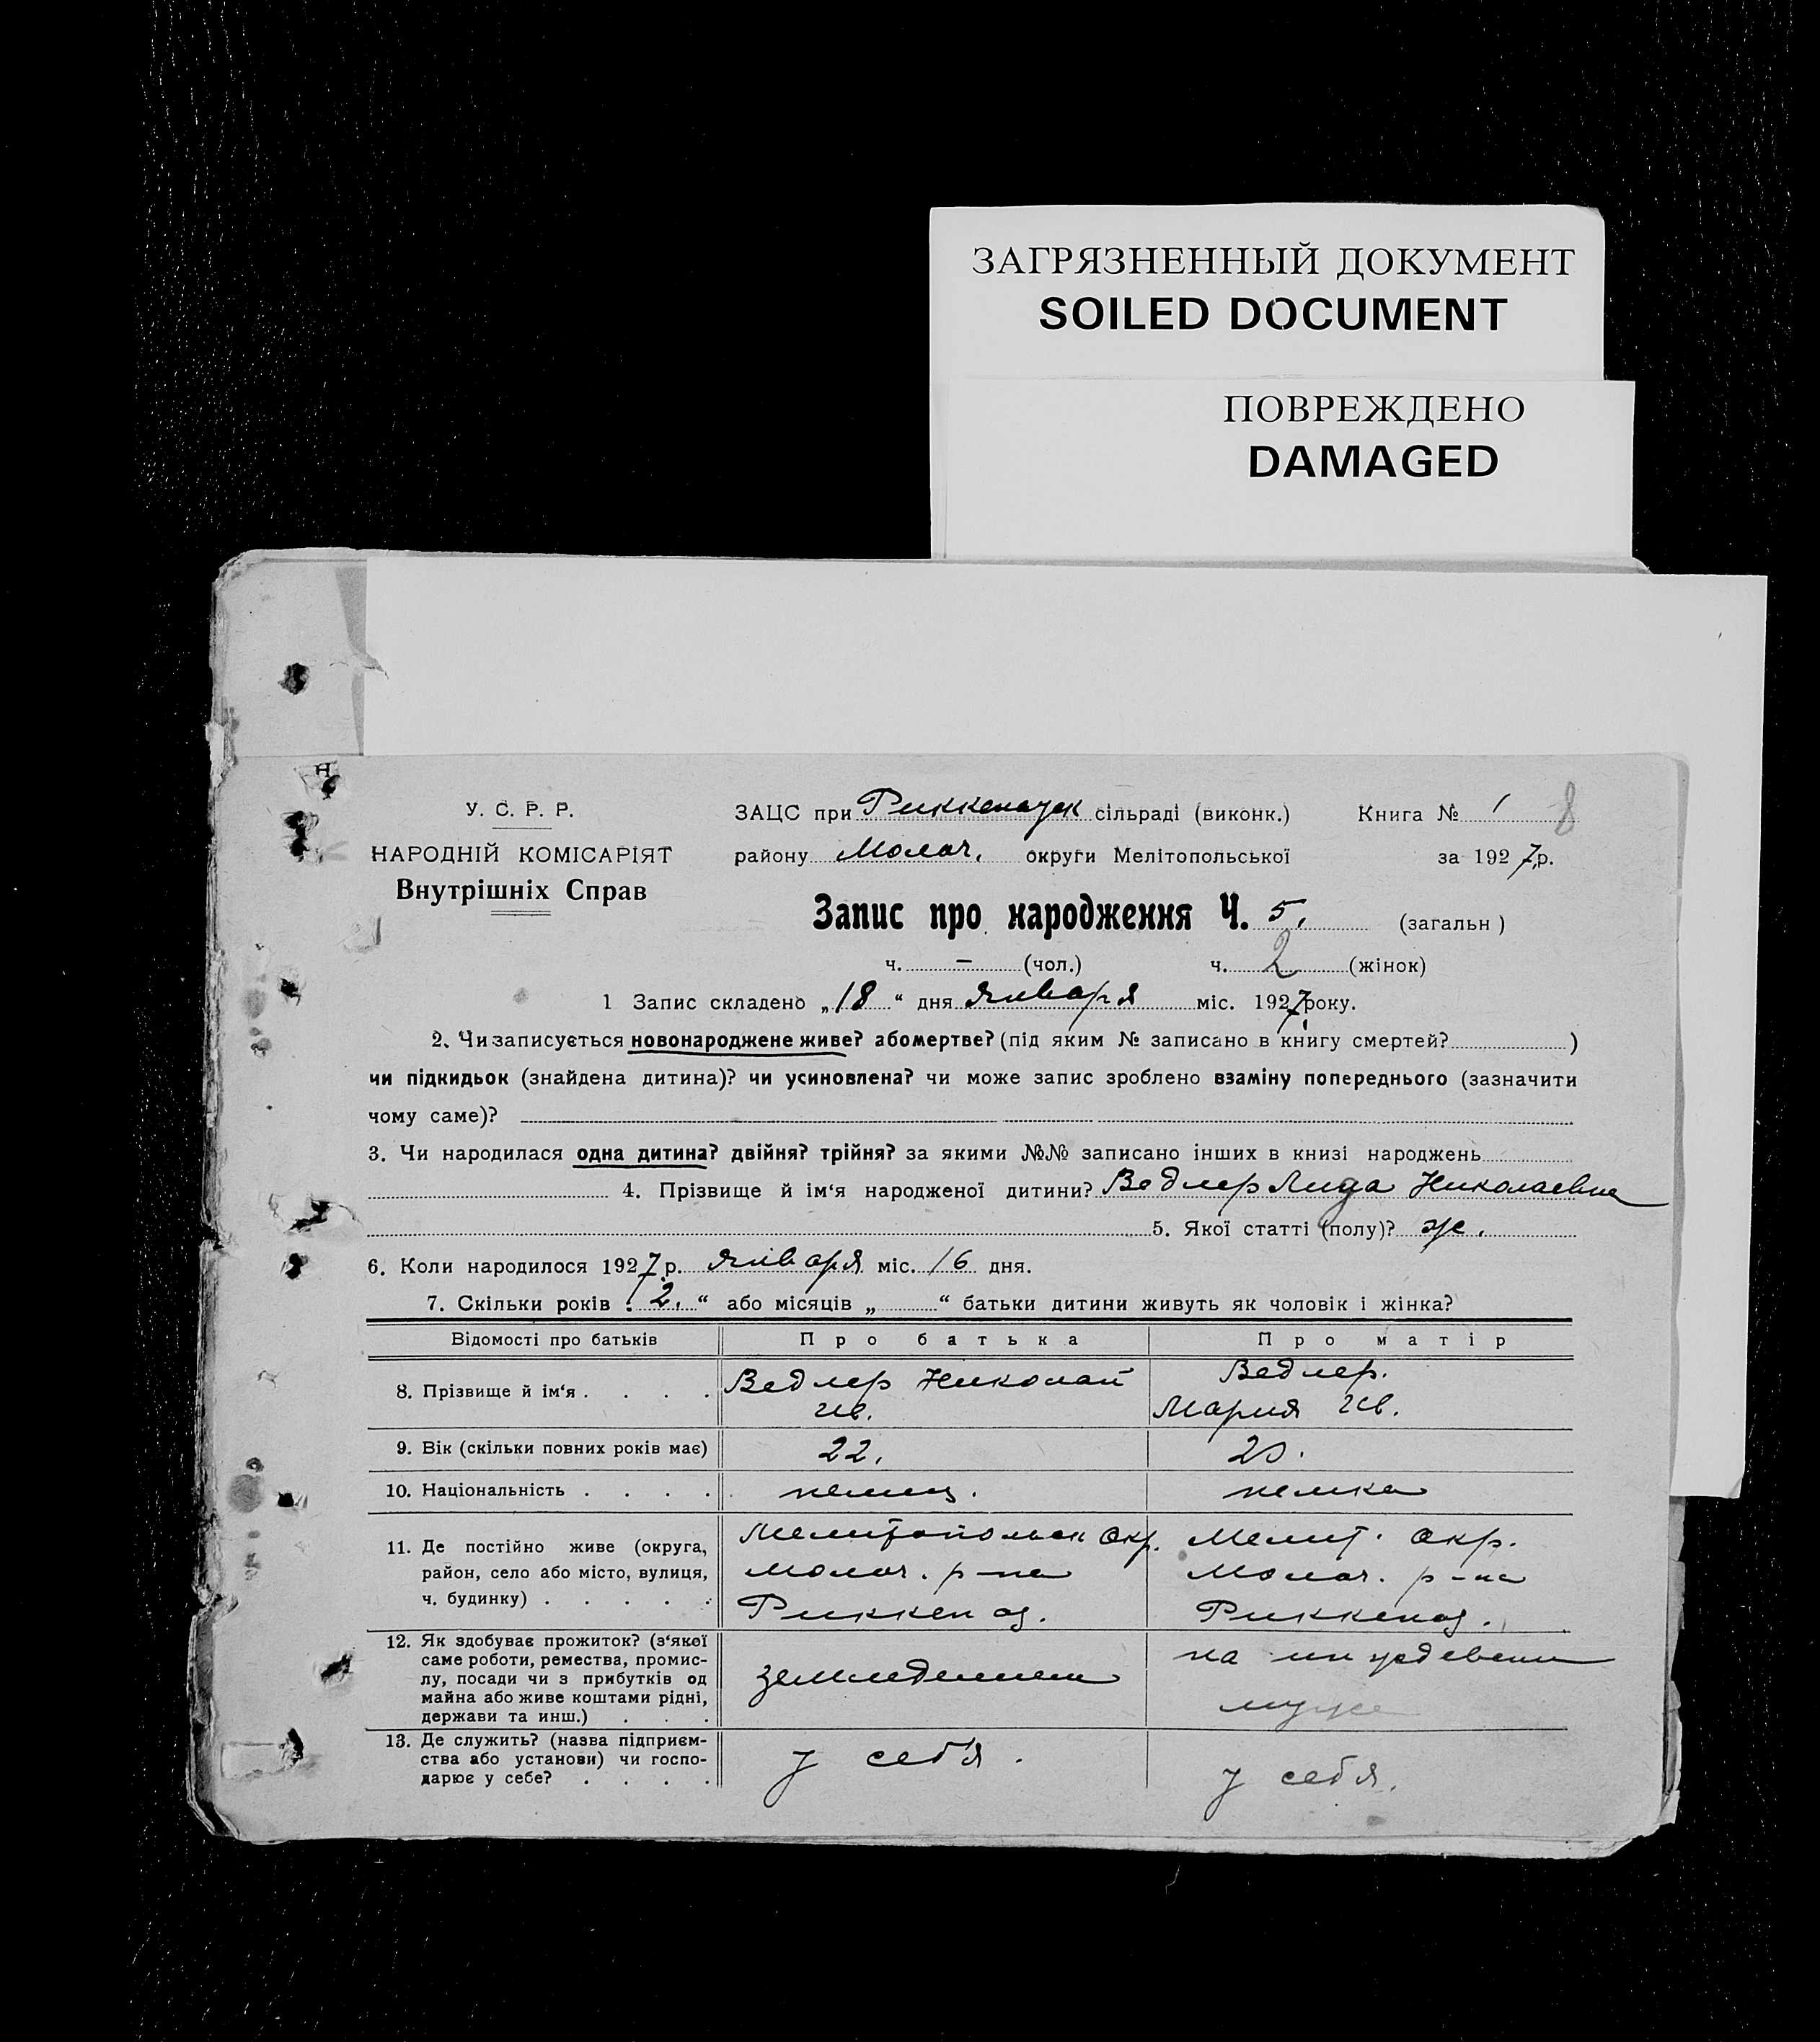 ЗАГРЯЗНЕННЫЙ ДОКУМЕНТ
SOILED DOCUMENT
ПОВРЕЖДЕНО
DAMAGED
Н
У. С. Р. Р.
НАРОДНІЙ КОМІСАРІЯТ
Внутрішніх Справ
ЗАЦС при Риккенауск сільраді (виконк.) Книга № 1 8
району Молоч. округи Мелітопольської за 1927 р.
Запис про народження Ч. 5. (загальн)
ч. — (чол.) ч. 2 (жінок)
1 Запис складено „18“ дня января міс. 1927 року.
2. Чи записується новонароджене живе? або мертве? (під яким № записано в книгу смертей? )
чи підкидьок (знайдена дитина)? чи усиновлена? чи може запис зроблено взаміну попереднього (зазначити
чому саме)?
3. Чи народилася одна дитина? двійня? трійня? за якими №№ записано інших в книзі народжень
4. Прізвище й ім‘я народженої дитини? Ведлер Лида Николаевна
5. Якої статті (полу)? ж.
6. Коли народилося 1927 р. января міс. 16 дня.
7. Скільки років „2.“ або місяців „ “ батьки дитини живуть як чоловік і жінка?
Відомості про батьків Про батька Про матір
8. Прізвище й ім‘я . . . . Ведлер Николай Ведлер.
Ив. Мария Ив.
9. Вік (скільки повних років має) 22. 20.
10. Національність . . . . немец. немка
11. Де постійно живе (округа, Мелитопольск Окр. Мелит. Окр.
район, село або місто, вулиця, Молоч. р-на Молоч. р-на
ч. будинку) . . . . . Риккенау. Риккенау.
12. Як здобуває прожиток? (з‘якої на иждевении
саме роботи, ремества, промис-
лу, посади чи з прибутків од земледелием
майна або живе коштами рідні, мужа
держави та инш.) . . .
13. Де служить? (назва підприєм- у себя. у себя.
ства або установи) чи госпо-
дарює у себе? . . . .